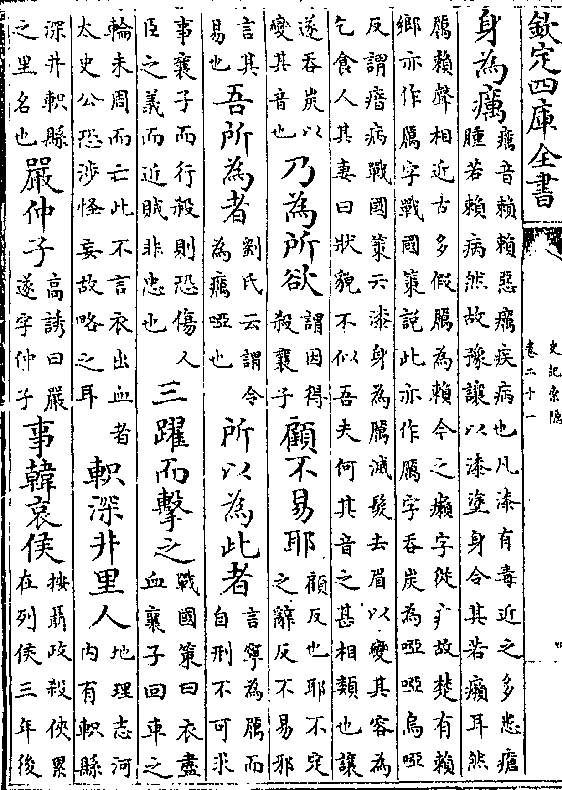 欽定四庫全書
史記索隱
卷二十一
身為癘
癘音賴賴惡瘡疾病也凡漆有毒近之多患瘡
腫若賴病然故豫讓以漆塗身令其若癩耳然
厲賴聲相近古多假厲為賴今之癩字從疒故楚有賴
鄉亦作厲字戰國策說此亦作厲字吞炭為啞啞烏啞
反謂瘖病戰國策云漆身為厲滅髮去眉以變其容為
乞食人其妻曰狀貌不似吾夫何其音之甚相類也讓
遂吞炭以
變其音也
乃為所欲
謂因得
殺襄子
顧不易耶
顧反也耶不定
之辭反不易邪
言其
易也
吾所為者
劉氏云謂今
為癘啞也
所以為此者
言寧為厲而
自刑不可求
事襄子而行殺則恐傷人
臣之義而近賊非忠也
三躍而擊之
戰國策曰衣盡
血襄子回車之
輪未周而亡此不言衣出血者
太史公恐涉怪妄故略之耳
軹深井里人
地理志河
內有軹縣
深井軹縣
之里名也
嚴仲子
高誘曰嚴
遂字仲子
事韓哀侯
按聶政殺俠累
在列侯三年後